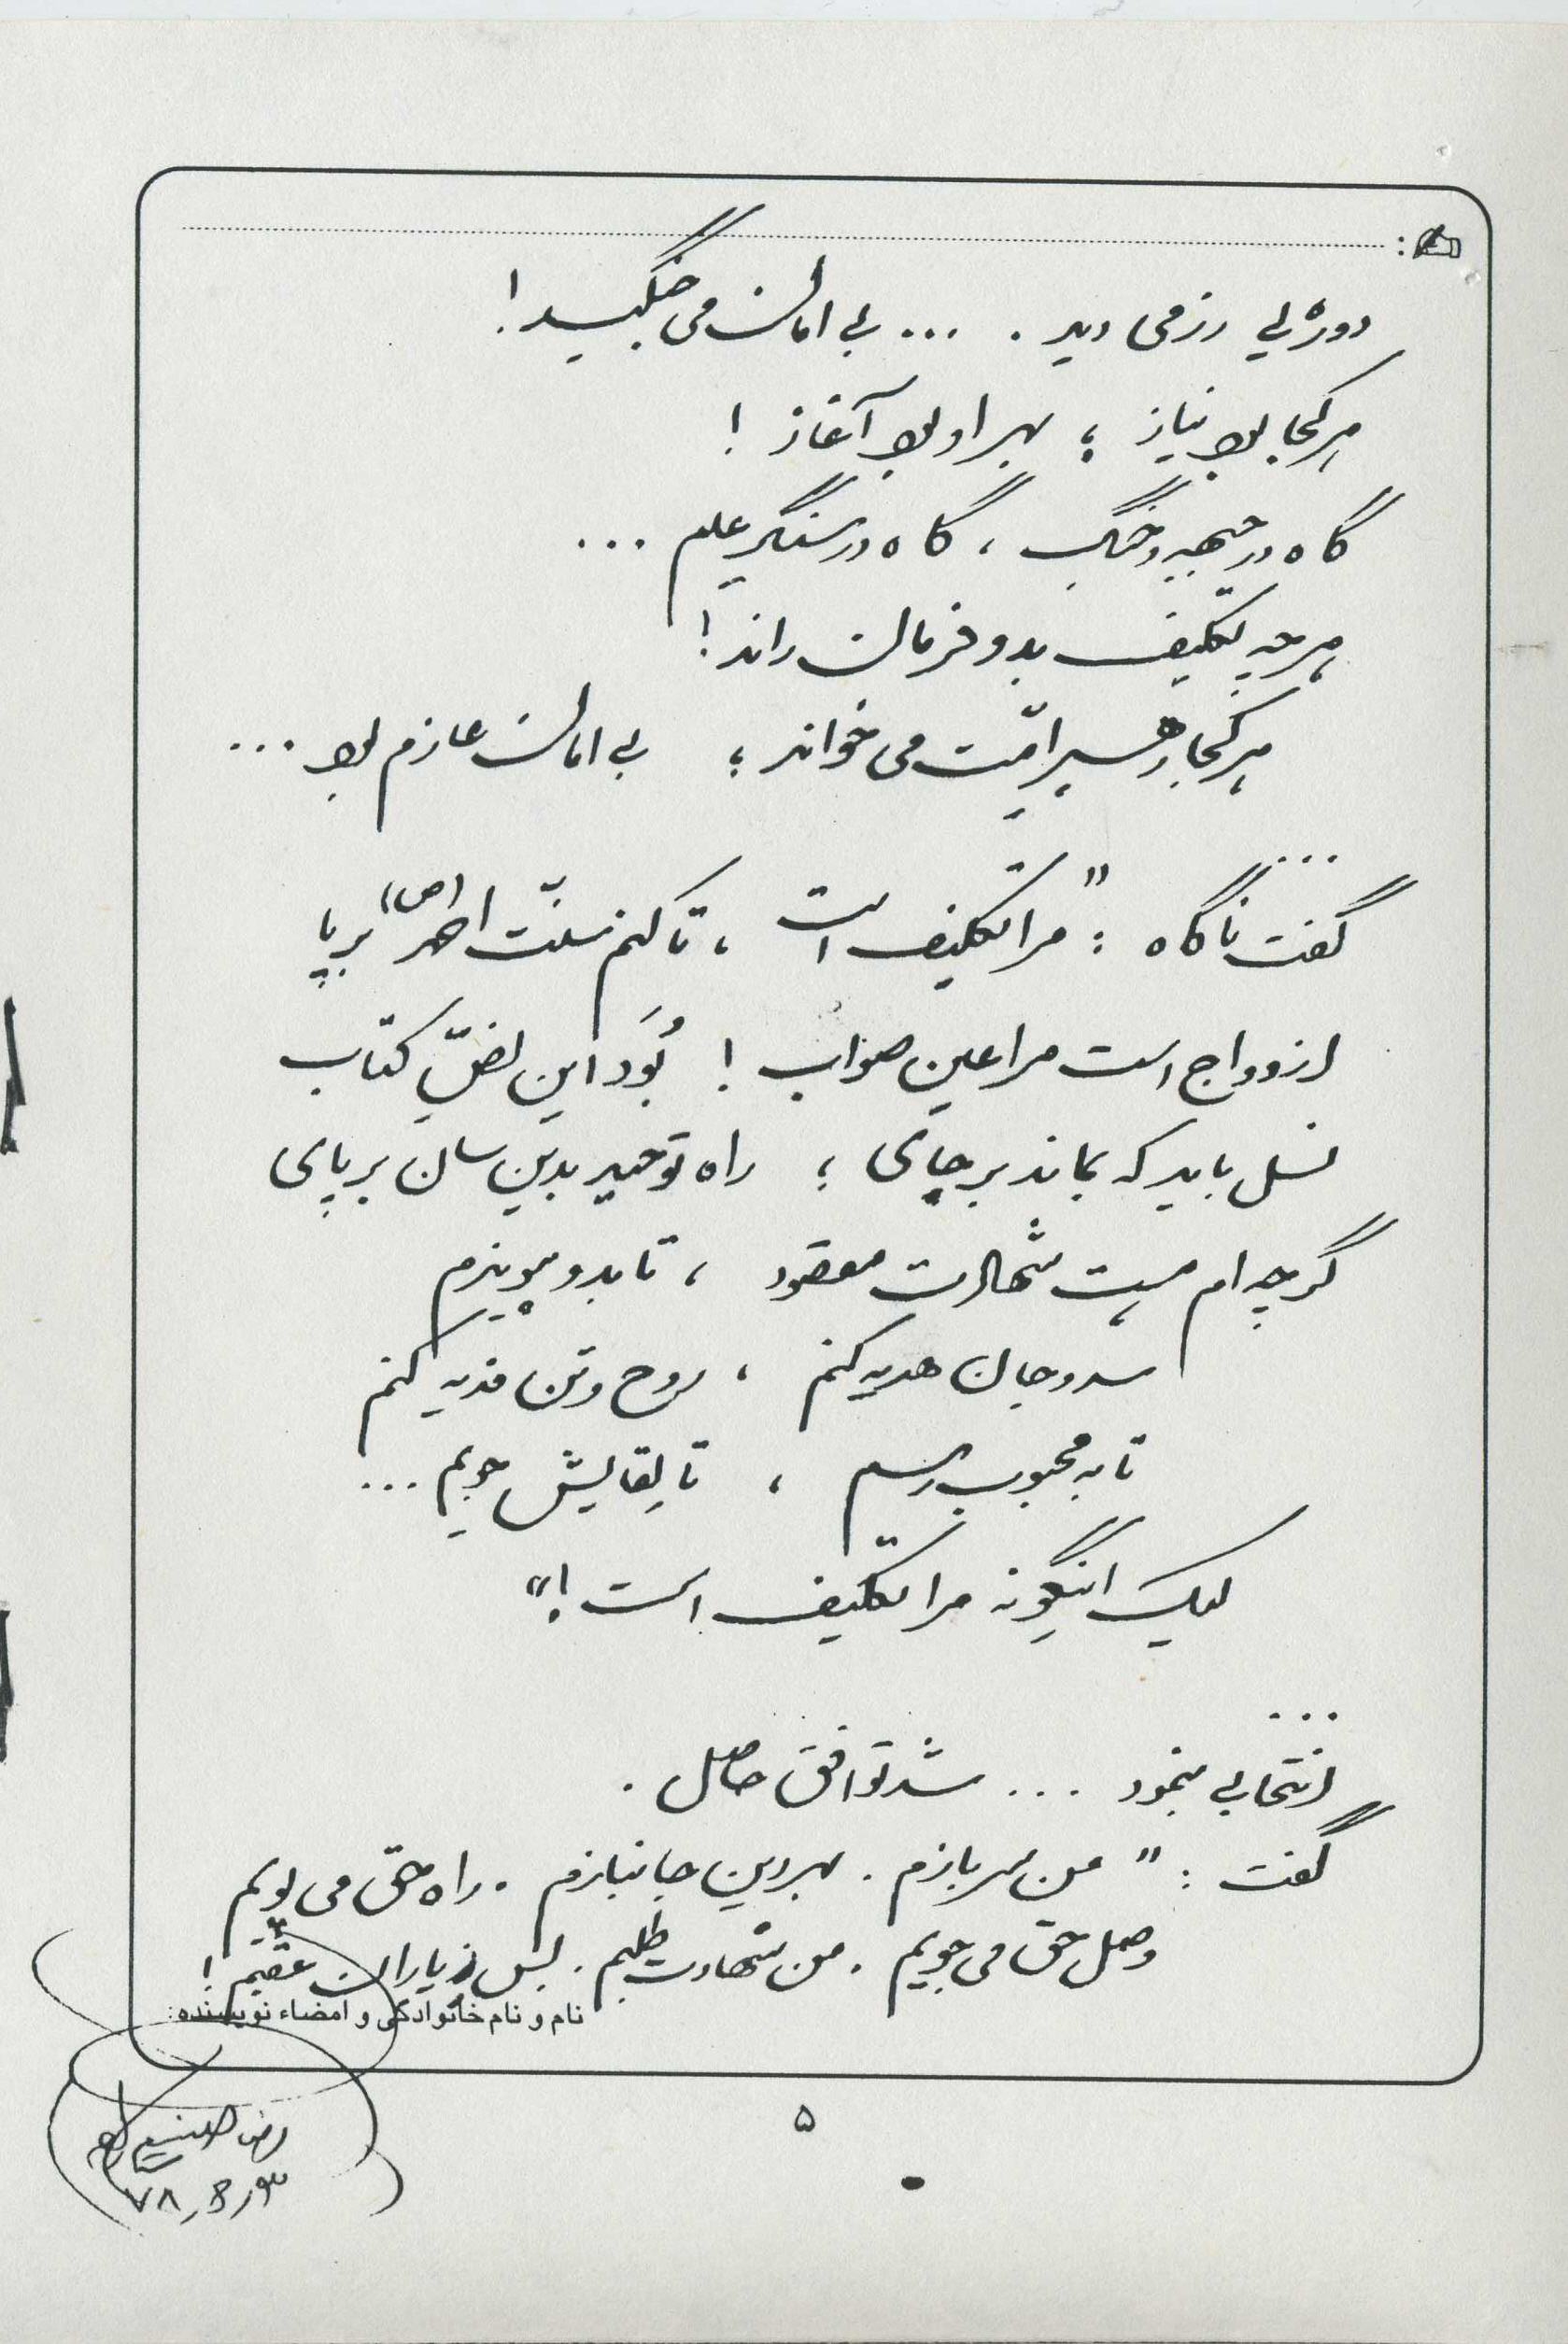 دوره‌یی رزمی دید . ... بی امان می جنگید !
هر کجا بود نیاز ؛ بهر او بود آغاز !
گاه در جبهه و جنگ ، گاه در سنگر علم ...
هر چه تکلیف بدو فرمان راند !
هر کجا رهبر امّت می خواند ؛ بی امان عازم بود ...
...
گفت ناگاه : " مرا تکلیف است ، تا کنم سنّت احمد (ص) برپا
ازدواج است مرا عین صواب ! بُوَد این نصّ کتاب
نسل باید که بماند بر جای ؛ راه توحید بدین سان بر پای
گرچه ام هست شهادت مقصود ، تا بدو پیوندم
سر و جان هدیه کنم ، روح و تن فدیه کنم
تا به محبوب رسم ، تا لِقایش جویم ...
لیک اینگونه مرا تکلیف است ! "
...
انتخابی بنمود ... شد توافق حاصل .
گفت : " من سربازم . بهر دین جانبازم . راه حق می پویم
وصل حق می جویم . من شهادت طلبم . پس ز یاران عقبم !
نام و نام خانوادگی و امضاء نویسنده:
۵
رضا